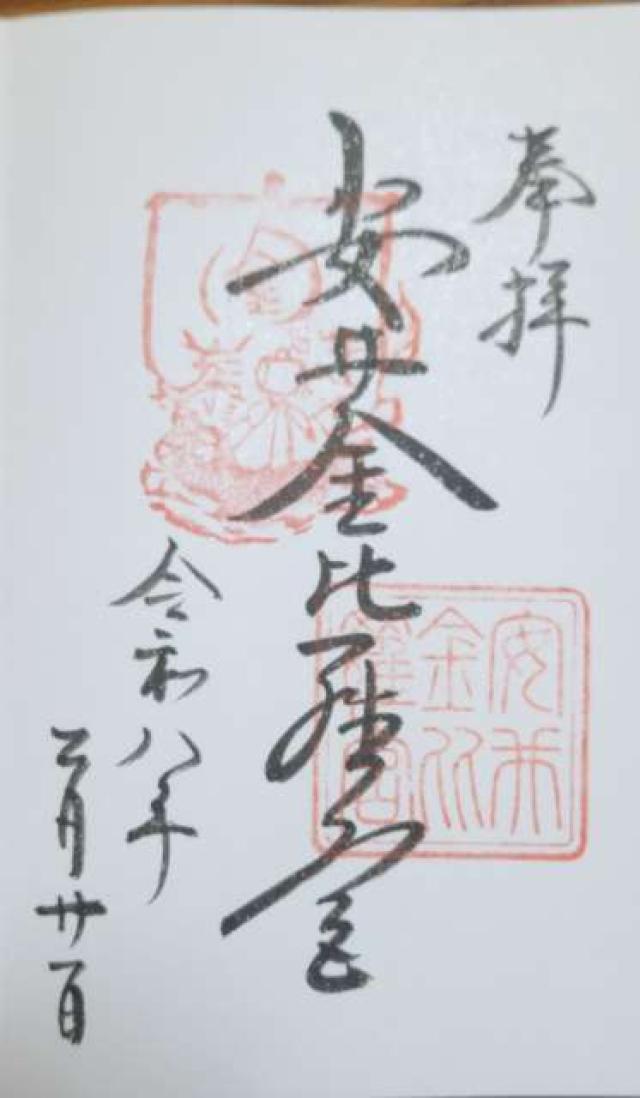 奉拝
安井金比羅宮
安井
金比
羅宮
令和八年
三月廿一日